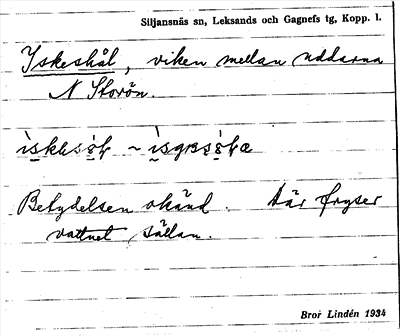 Siljansnäs sn, Leksands och Gagnefs tg, Kopp. l.
Yskeshål, viken mellan uddarna
N Storön.
Betydelsen okänd. Där fryser
vattnet sällan.
Bror Lindén 1934